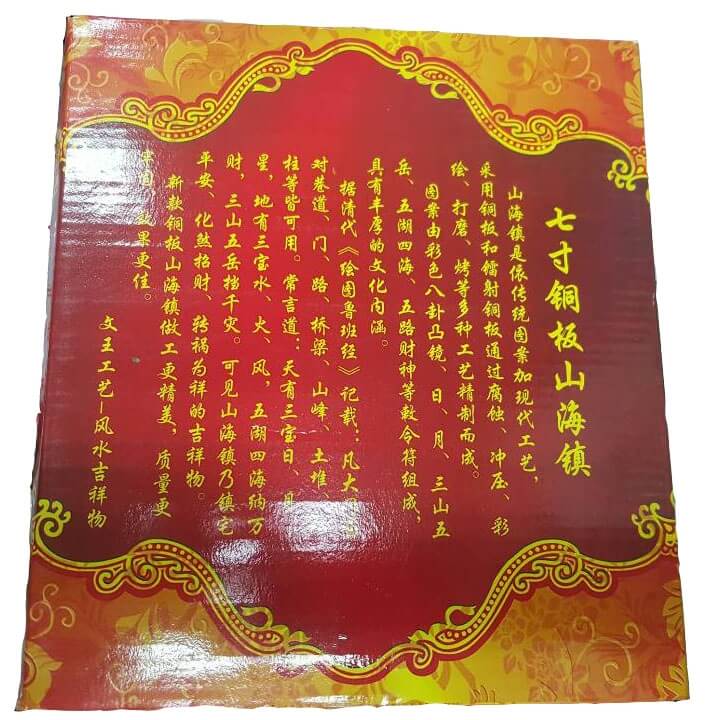 七寸铜板山海镇
山海镇是依传统图案加现代工艺，
采用铜板和镭射铜板通过腐蚀、冲压、彩
绘、打磨、烤等多种工艺精制而成。
图案由彩色八卦凸镜、日、月、三山五
岳、五湖四海、五路财神等敕令符组成，
具有丰厚的文化内涵。
据清代《绘图鲁班经》记载：凡大
对巷道、门、路、桥梁、山峰、土堆、
柱等皆可用。常言道：天有三宝日、月
星，地有三宝水、火、风，五湖四海纳万
财，三山五岳档千灾。可见山海镇乃镇宅
平安、化煞招财、转祸为祥的吉祥物。
新款铜板山海镇做工更精美，质量更
牢固，效果更佳。
文王工艺—风水吉祥物